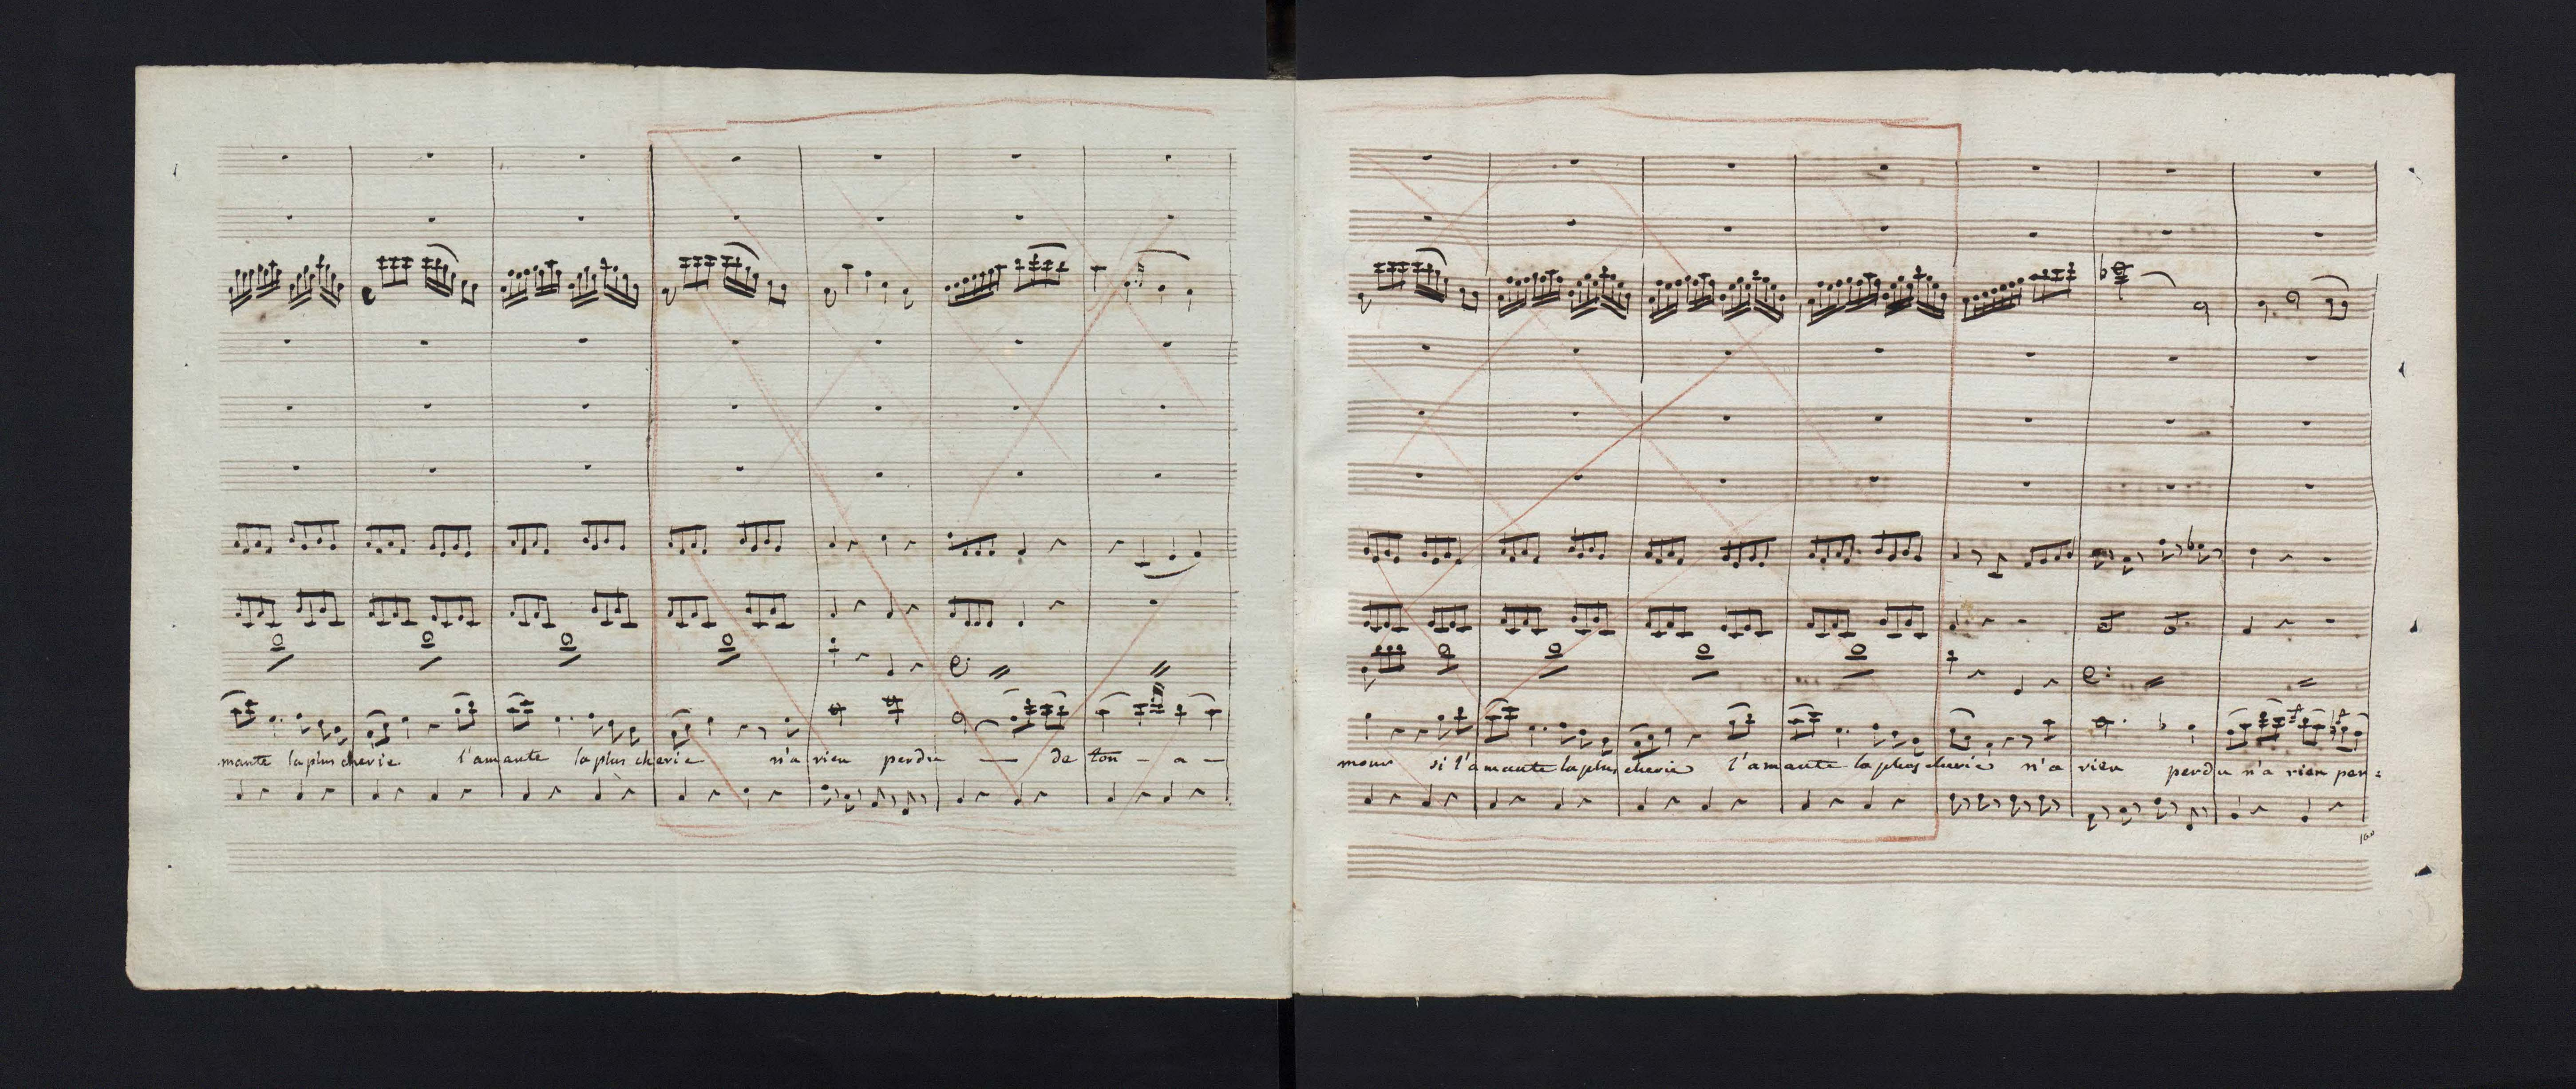 mante la plus cherie l'amante la plus cherie n'a rien perdu — de ton - a -
mour si l'amante la plus cherie l'amante la plus cherie n'a rien perdu n'a rien per=
160